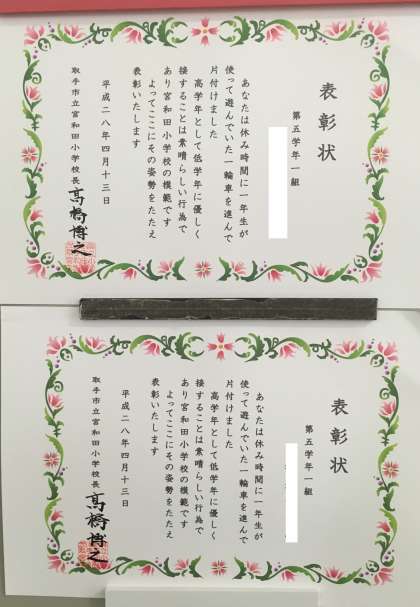 表彰状
第五学年一組
あなたは休み時間に一年生が
使って遊んでいた一輪車を進んで
片付けました
高学年として低学年に優しく
接することは素晴らしい行為で
あり宮和田小学校の模範です
よってここにその姿勢をたたえ
表彰いたします
平成二八年四月十三日
取手市立宮和田小学校長 高橋博之
表彰状
第五学年一組
あなたは休み時間に一年生が
使って遊んでいた一輪車を進んで
片付けました
高学年として低学年に優しく
接することは素晴らしい行為で
あり宮和田小学校の模範です
よってここにその姿勢をたたえ
表彰いたします
平成二八年四月十三日
取手市立宮和田小学校長 高橋博之